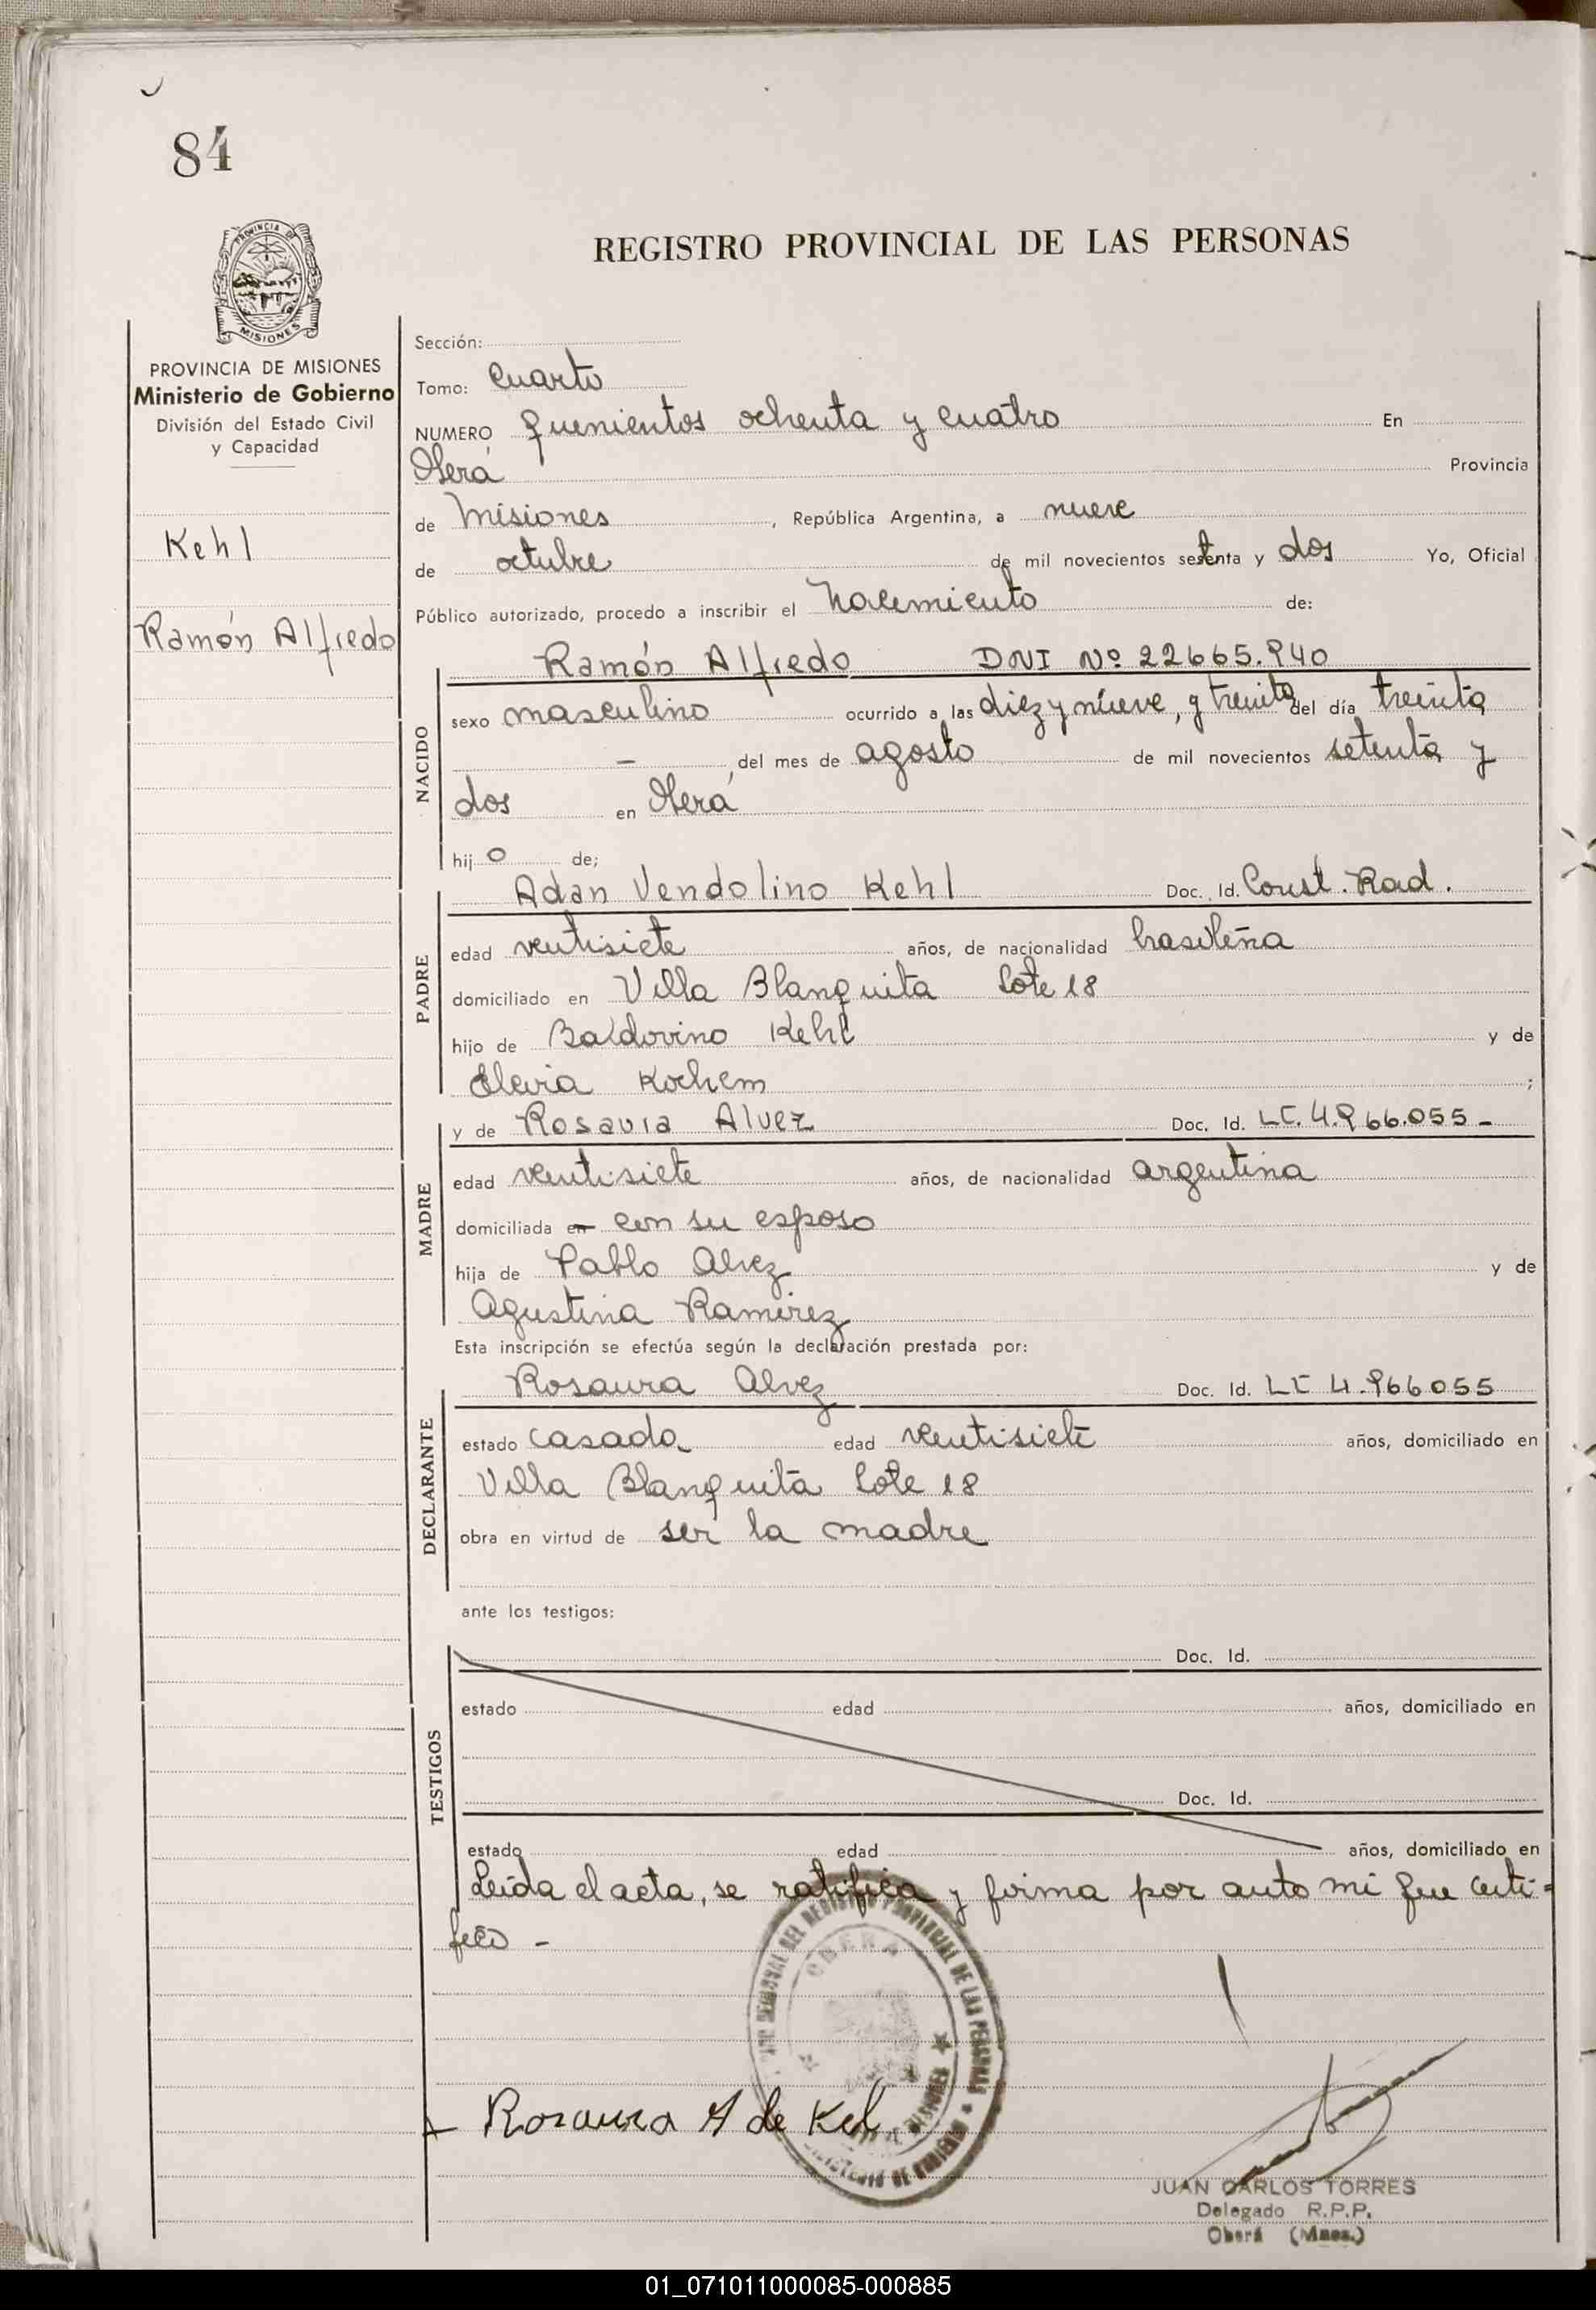 84
REGISTRO PROVINCIAL DE LAS PERSONAS
PROVINCIA DE
MISIONES
PROVINCIA DE MISIONES
Ministerio de Gobierno
División del Estado Civil
y Capacidad
Kehl
Ramón Alfredo
Sección:
Tomo: Cuarto
NUMERO quinientos ochenta y cuatro En
Oberá Provincia
de Misiones, República Argentina, a nueve
de octubre de mil novecientos setenta y dos Yo, Oficial
Público autorizado, procedo a inscribir el nacimiento de:
NACIDO
Ramón Alfredo DNI Nº 22665.940
sexo masculino ocurrido a las diez y nueve, y treinta del día treinta
- del mes de agosto de mil novecientos setenta y
dos en Oberá
hijo de;
PADRE
Adan Vendolino Kehl Doc. Id. Const. Rad.
edad ventisiete años, de nacionalidad brasileña
domiciliado en Villa Blanquita Lote 18
hijo de Baldovino Kehl y de
Elevia Kochem ;
MADRE
y de Rosavra Alvez Doc. Id. LC. 4.966.055-
edad ventisiete años, de nacionalidad argentina
domiciliada en con su esposo
hija de Pablo Alvez y de
Agustina Ramirez
Esta inscripción se efectúa según la declaración prestada por:
DECLARANTE
Rosaura Alvez Doc. Id. LC 4.966055
estado casada edad ventisiete años, domiciliado en
Villa Blanquita Lote 18
obra en virtud de ser la madre
ante los testigos:
TESTIGOS
Doc. Id.
estado edad años, domiciliado en
Doc. Id.
estado edad años, domiciliado en
Leida el acta, se ratifica y firma por ante mi que certi=
fico -
REGISTRO PROVINCIAL DE LAS PERSONAS
OBERA
Rosaura A de Kel
JUAN CARLOS TORRES
Delegado R.P.P.
Oberá (Mnes.)
01_071011000085-000885